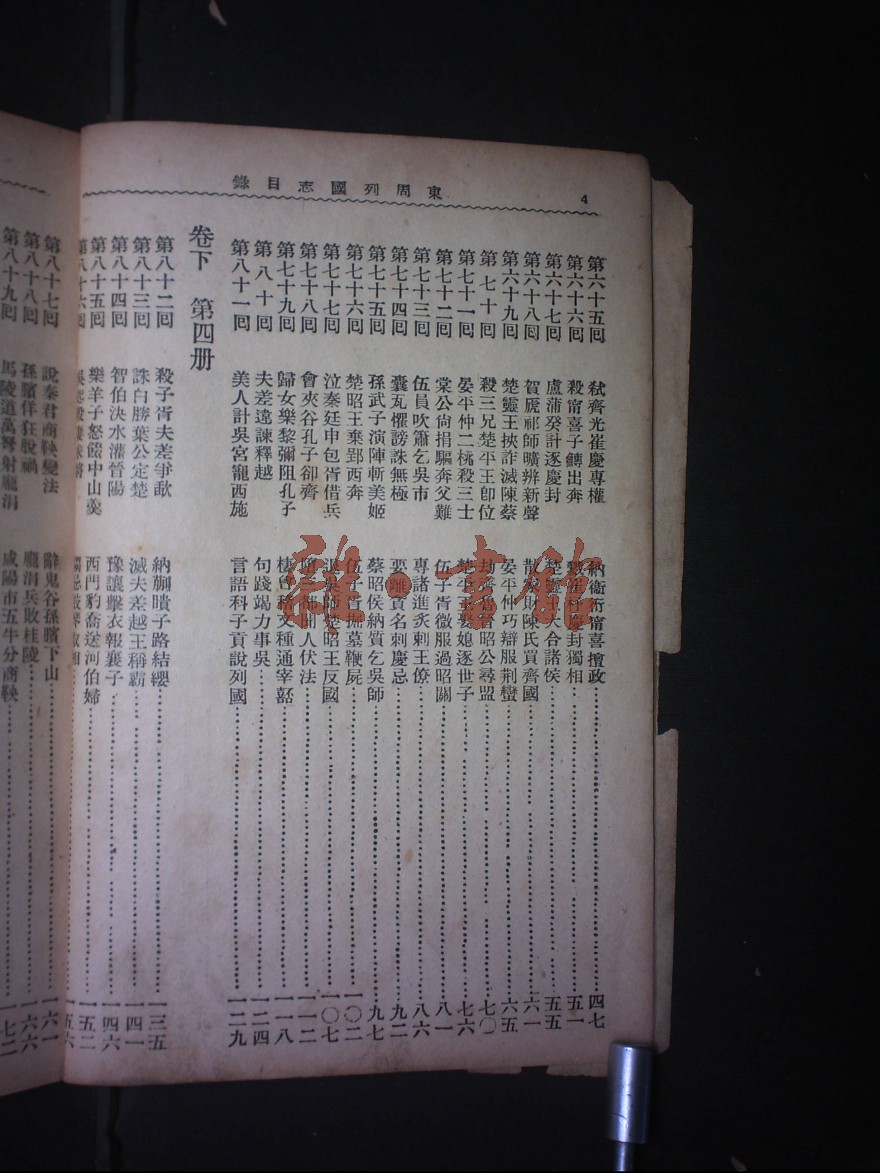 東周列國志目錄
4
第六十五回 弑齊光崔慶專權 納衞衎甯喜擅政 四七
第六十六回 殺甯喜子鱄出奔 慶封獨相 五一
第六十七回 盧蒲癸計逐慶封 楚靈王大合諸侯 五五
第六十八回 賀虒祁師曠辨新聲 散家財陳氏買齊國 六一
第六十九回 楚靈王挾詐滅陳蔡 晏平仲巧辯服荆蠻 六五
第七十回 殺三兄楚平王卽位 劫齊魯晉昭公尋盟 七〇
第七十一回 晏平仲二桃殺三士 楚平王娶媳逐世子 七六
第七十二回 棠公尙捐驅奔父難 伍子胥微服過昭關 八一
第七十三回 伍員吹簫乞吳市 專諸進炙刺王僚 八六
第七十四回 囊瓦懼謗誅無極 要離貪名刺慶忌 九二
第七十五回 孫武子演陣斬美姬 蔡昭侯納質乞吳師 九七
第七十六回 楚昭王棄郢西奔 伍子胥掘墓鞭屍 一〇二
第七十七回 泣秦廷申包胥借兵 退吳師楚昭王反國 一〇七
第七十八回 會夾谷孔子卻齊 墮三都聞人伏法 一一二
第七十九回 歸女樂黎彌阻孔子 棲會稽文種通宰嚭 一一八
第八十回 夫差違諫釋越 句踐竭力事吳 一二四
第八十一回 美人計吳宮寵西施 言語科子貢說列國 一二九
卷下 第四册
第八十二回 殺子胥夫差爭歃 納蒯瞶子路結纓 一三五
第八十三回 誅白勝葉公定楚 滅夫差越王稱霸 一四一
第八十四回 智伯決水灌晉陽 豫讓擊衣報襄子 一四六
第八十五回 樂羊子怒餟中山羹 西門豹喬送河伯婦 一五二
第八十六回 一五六
第八十七回 說秦君商鞅變法 辭鬼谷孫臏下山 一六一
第八十八回 孫臏佯狂脫禍 龐涓兵敗桂陵 一六六
第八十九回 馬陵道萬弩射龐涓 咸陽市五牛分商鞅 一七二
雜·書館